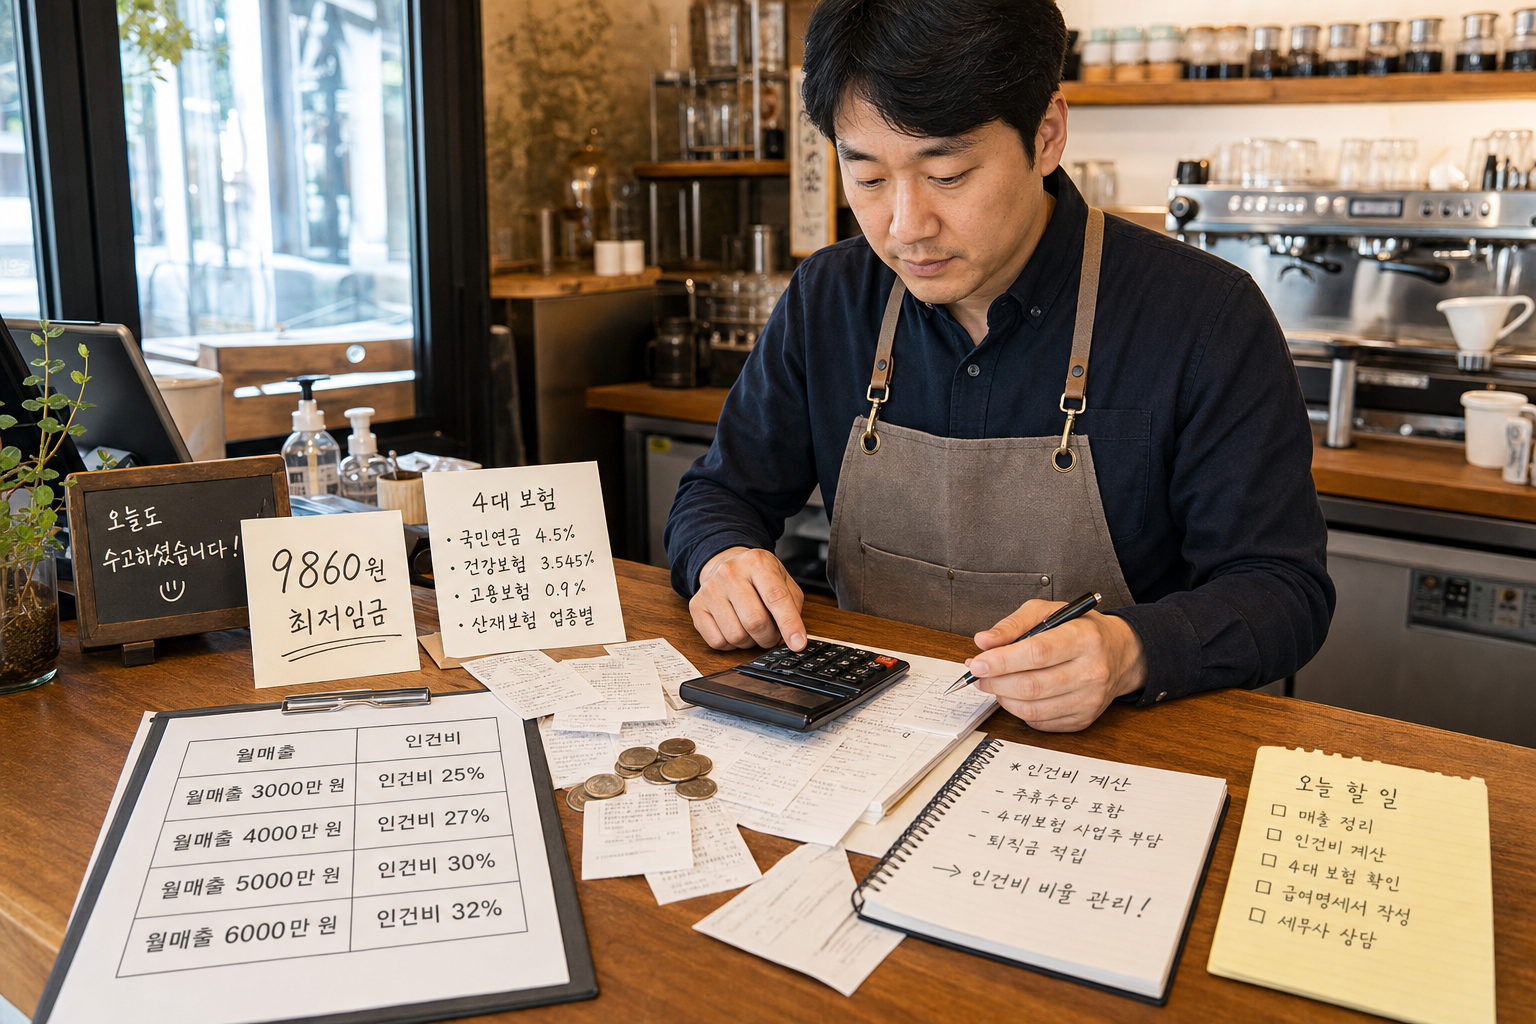 오늘도
수고하셨습니다!
9860원
최저임금
4대 보험
· 국민연금 4.5%
· 건강보험 3.545%
· 고용보험 0.9%
· 산재보험 업종별
월매출 인건비
월매출 3000만 원 인건비 25%
월매출 4000만 원 인건비 27%
월매출 5000만 원 인건비 30%
월매출 6000만 원 인건비 32%
* 인건비 계산
- 주휴수당 포함
- 4대보험 사업주 부담
- 퇴직금 적립
→ 인건비 비율 관리!
오늘 할 일
□ 매출 정리
□ 인건비 계산
□ 4대 보험 확인
□ 급여명세서 작성
□ 세무사 상담